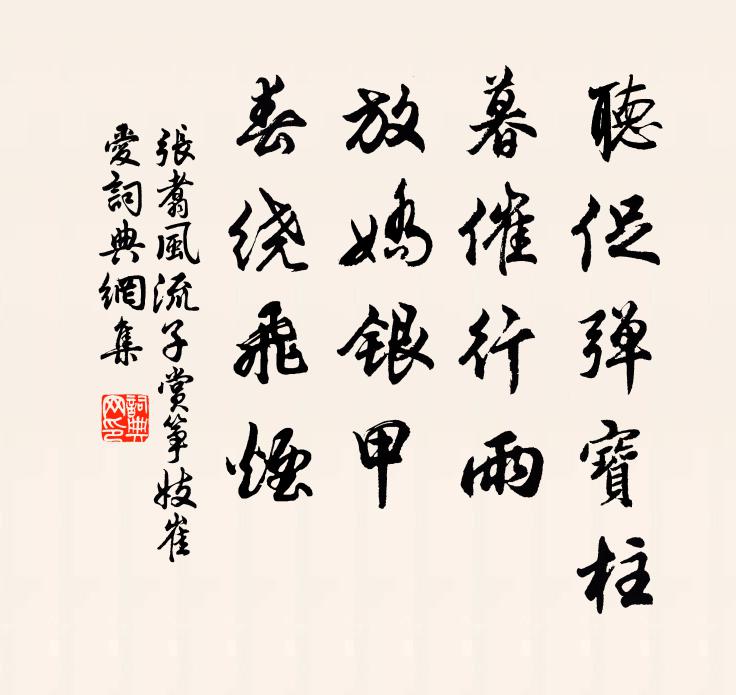 聽促弹寶柱
暮催行雨
放嬌銀甲
春绕飛煙
張翥風流子賞筝妓崔
愛詞典網集
詞典网印